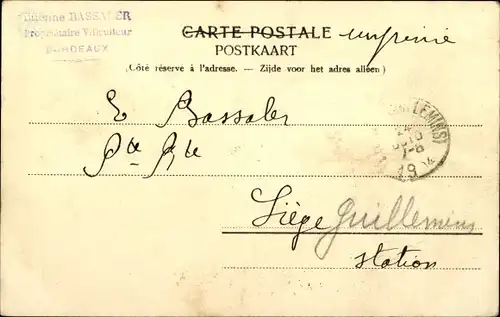 Etienne BASSALER
Propriétaire Viticulteur
BORDEAUX
CARTE POSTALE imprimé
POSTKAART
(Côté réservé à l'adresse. — Zijde voor het adres alleen)
E Bassaler
Pte Rte
Liège Guillemins
station
LEMINS)
7-8
19